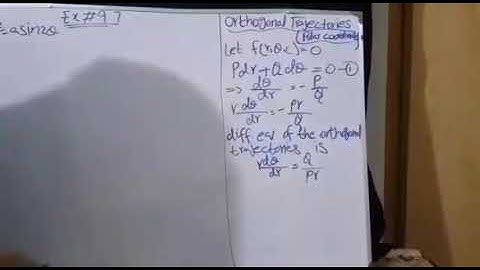 Ex # 9.7
= a sin2θ
Orthogonal Trajectories
(Polar coordinates)
Let f(r,θ,c) = 0
Pdr + Qdθ = 0 -①
⇒ dθ/dr = -P/Q
rdθ/dr = -Pr/Q
diff eq of the orthogonal
trajectories is
rdθ/dr = Q/Pr